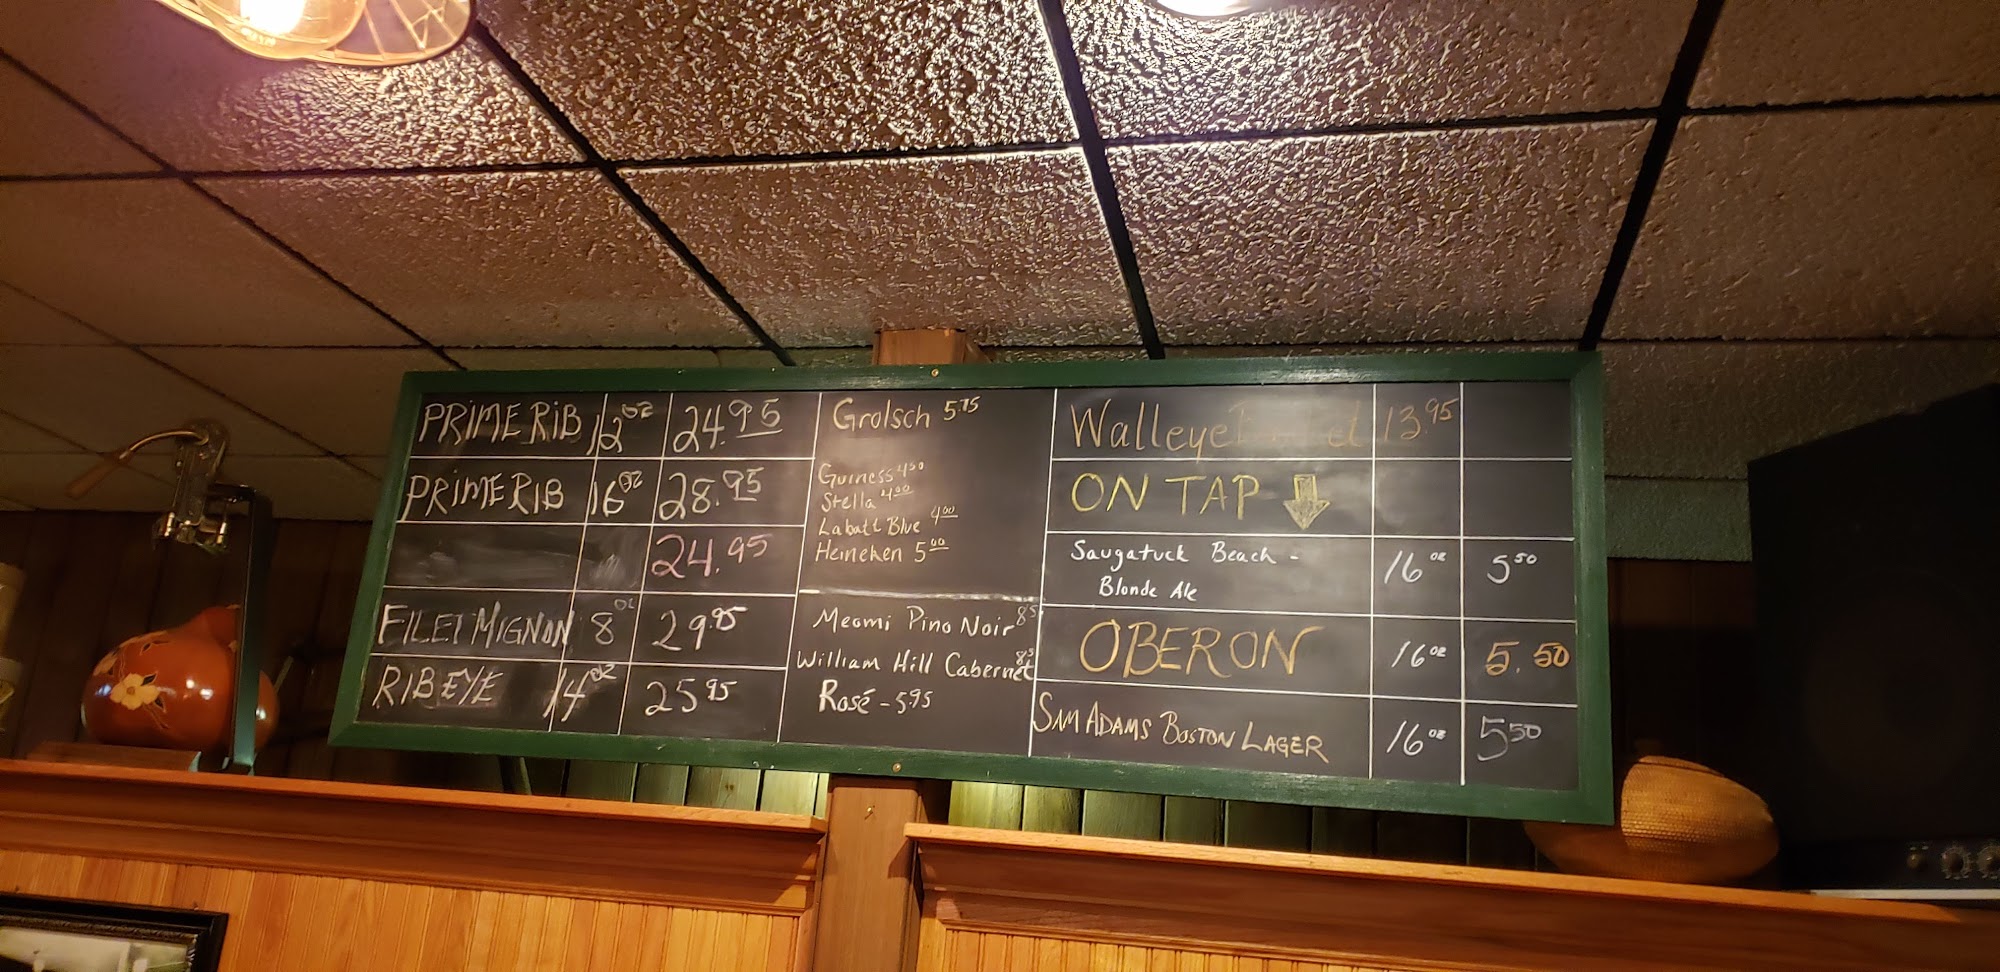 PRIME RIB 12oz 24.95
PRIME RIB 16oz 28.95
24.95
FILET MIGNON 8oz 29.95
RIBEYE 14oz 25 95
Grolsch 5.75
Guiness 4 50
Stella 4 00
Labatt Blue 4 00
Heineken 5 00
Meomi Pino Noir 8 5
William Hill Cabernet 8 5
Rosé - 5.95
Walleye 13.95
ON TAP
Saugatuck Beach - 16 oz 5 50
Blonde Ale
OBERON 16 oz 5.50
SAM ADAMS BOSTON LAGER 16 oz 5 50